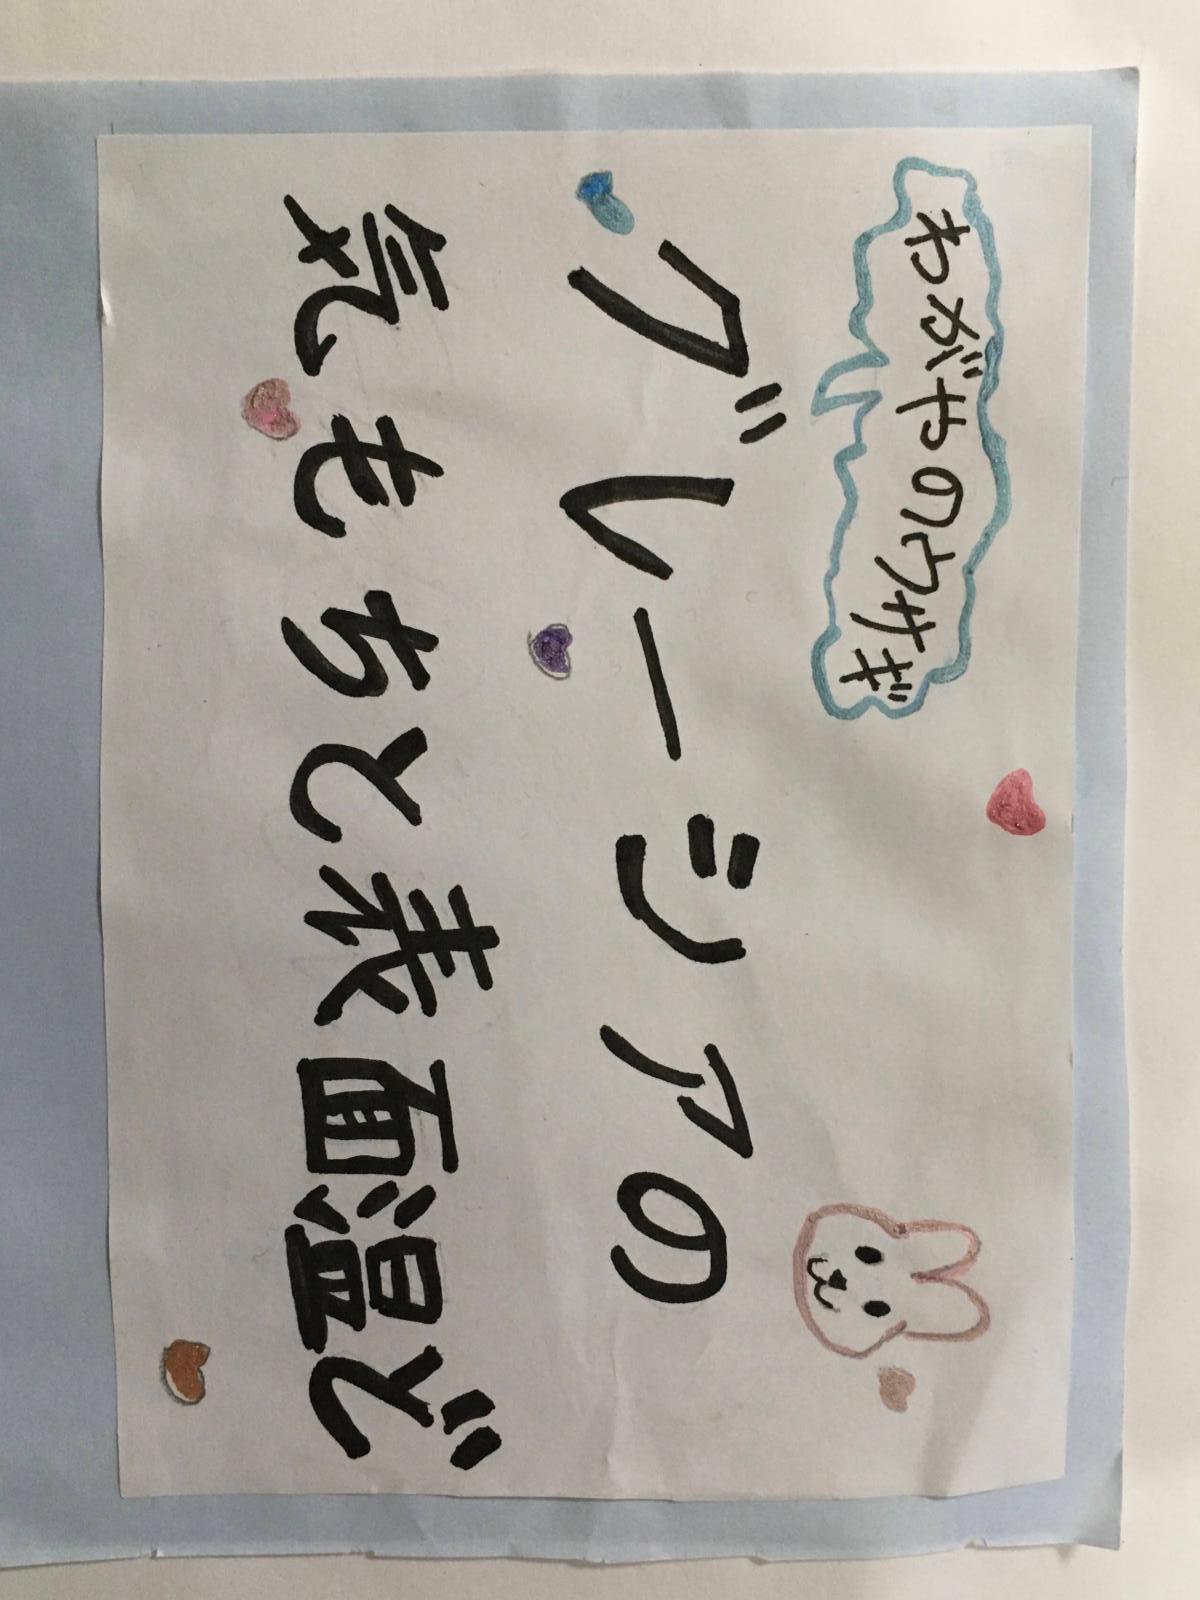 わがやのウサギ
グレーシアの
気もちと表面温ど